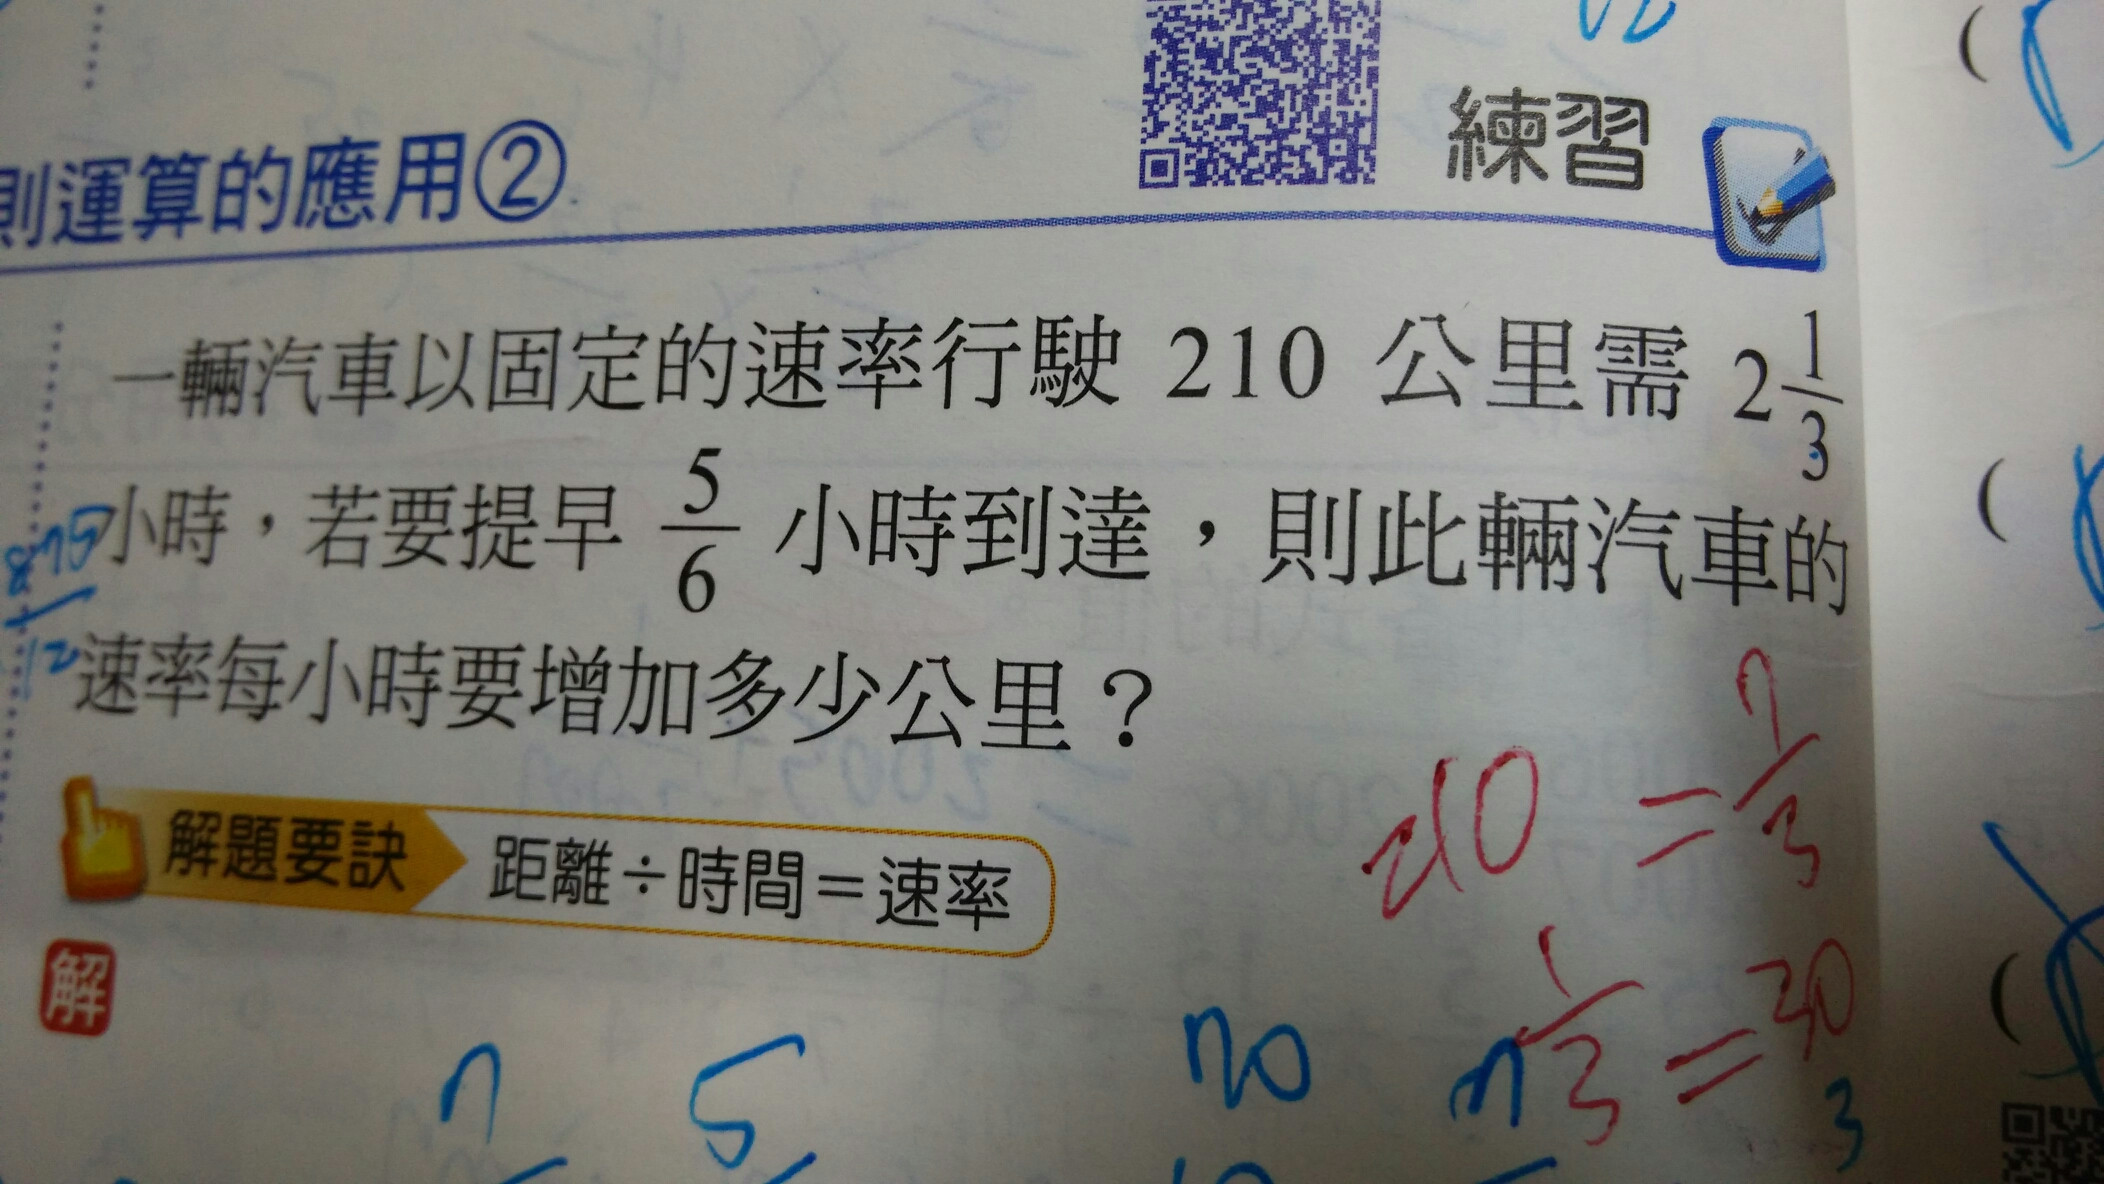 則運算的應用②
練習
一輛汽車以固定的速率行駛 210 公里需 2 1/3
小時，若要提早 5/6 小時到達，則此輛汽車的
速率每小時要增加多少公里？
210 = 7/3
解題要訣 距離÷時間＝速率
1/3 = 30
解
7 5 70
3